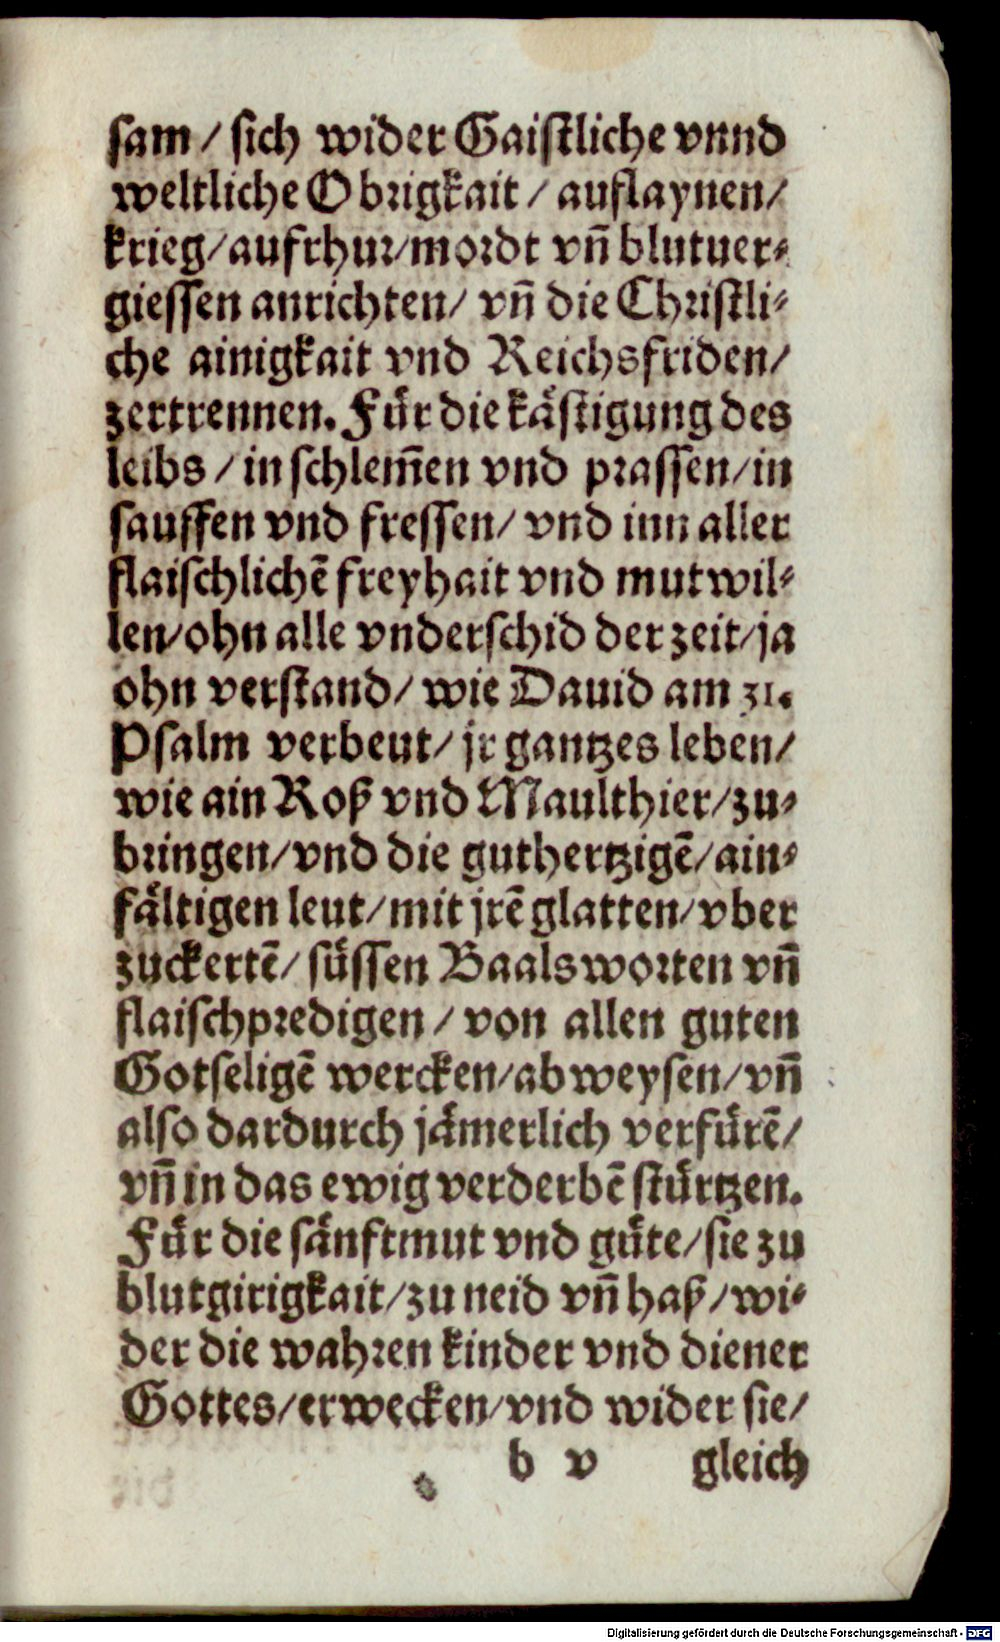 sam / sich wider Gaistliche vnnd
weltliche Obrigkait / auflaynen/
krieg/aufrhur/mordt vn̄ blutuer⸗
giessen anrichten/ vn̄ die Christli⸗
che ainigkait vnd Reichsfriden/
zertrennen. Für die kästigung des
leibs / in schlem̄en vnd prassen/in
sauffen vnd fressen/ vnd inn aller
flaischlichē freyhait vnd mutwil⸗
len/ohn alle vnderschid der zeit/ja
ohn verstand/ wie Dauid am 31.
Psalm verbeut/ jr gantzes leben/
wie ain Roß vnd Maulthier/zu⸗
bringen/vnd die guthertzigē/ain⸗
fältigen leut/mit jrē glatten/vber
zuckertē/ süssen Baalsworten vn̄
flaischpredigen / von allen guten
Gotseligē wercken/abweysen/vn̄
also dardurch jämerlich verfürē/
vn̄ in das ewig verderbē stürtzen.
Für die sänftmut vnd güte/sie zu
blutgirigkait/zu neid vn̄ haß/wi⸗
der die wahren kinder vnd diener
Gottes/erwecken/vnd wider sie/
b v gleich
Digitalisierung gefördert durch die Deutsche Forschungsgemeinschaft - DFG